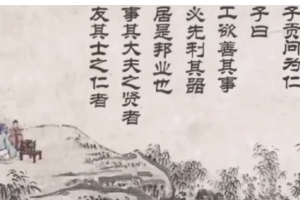 子贡问为仁
子曰
工欲善其事
必先利其器
居是邦业也
事其大夫之贤者
友其士之仁者